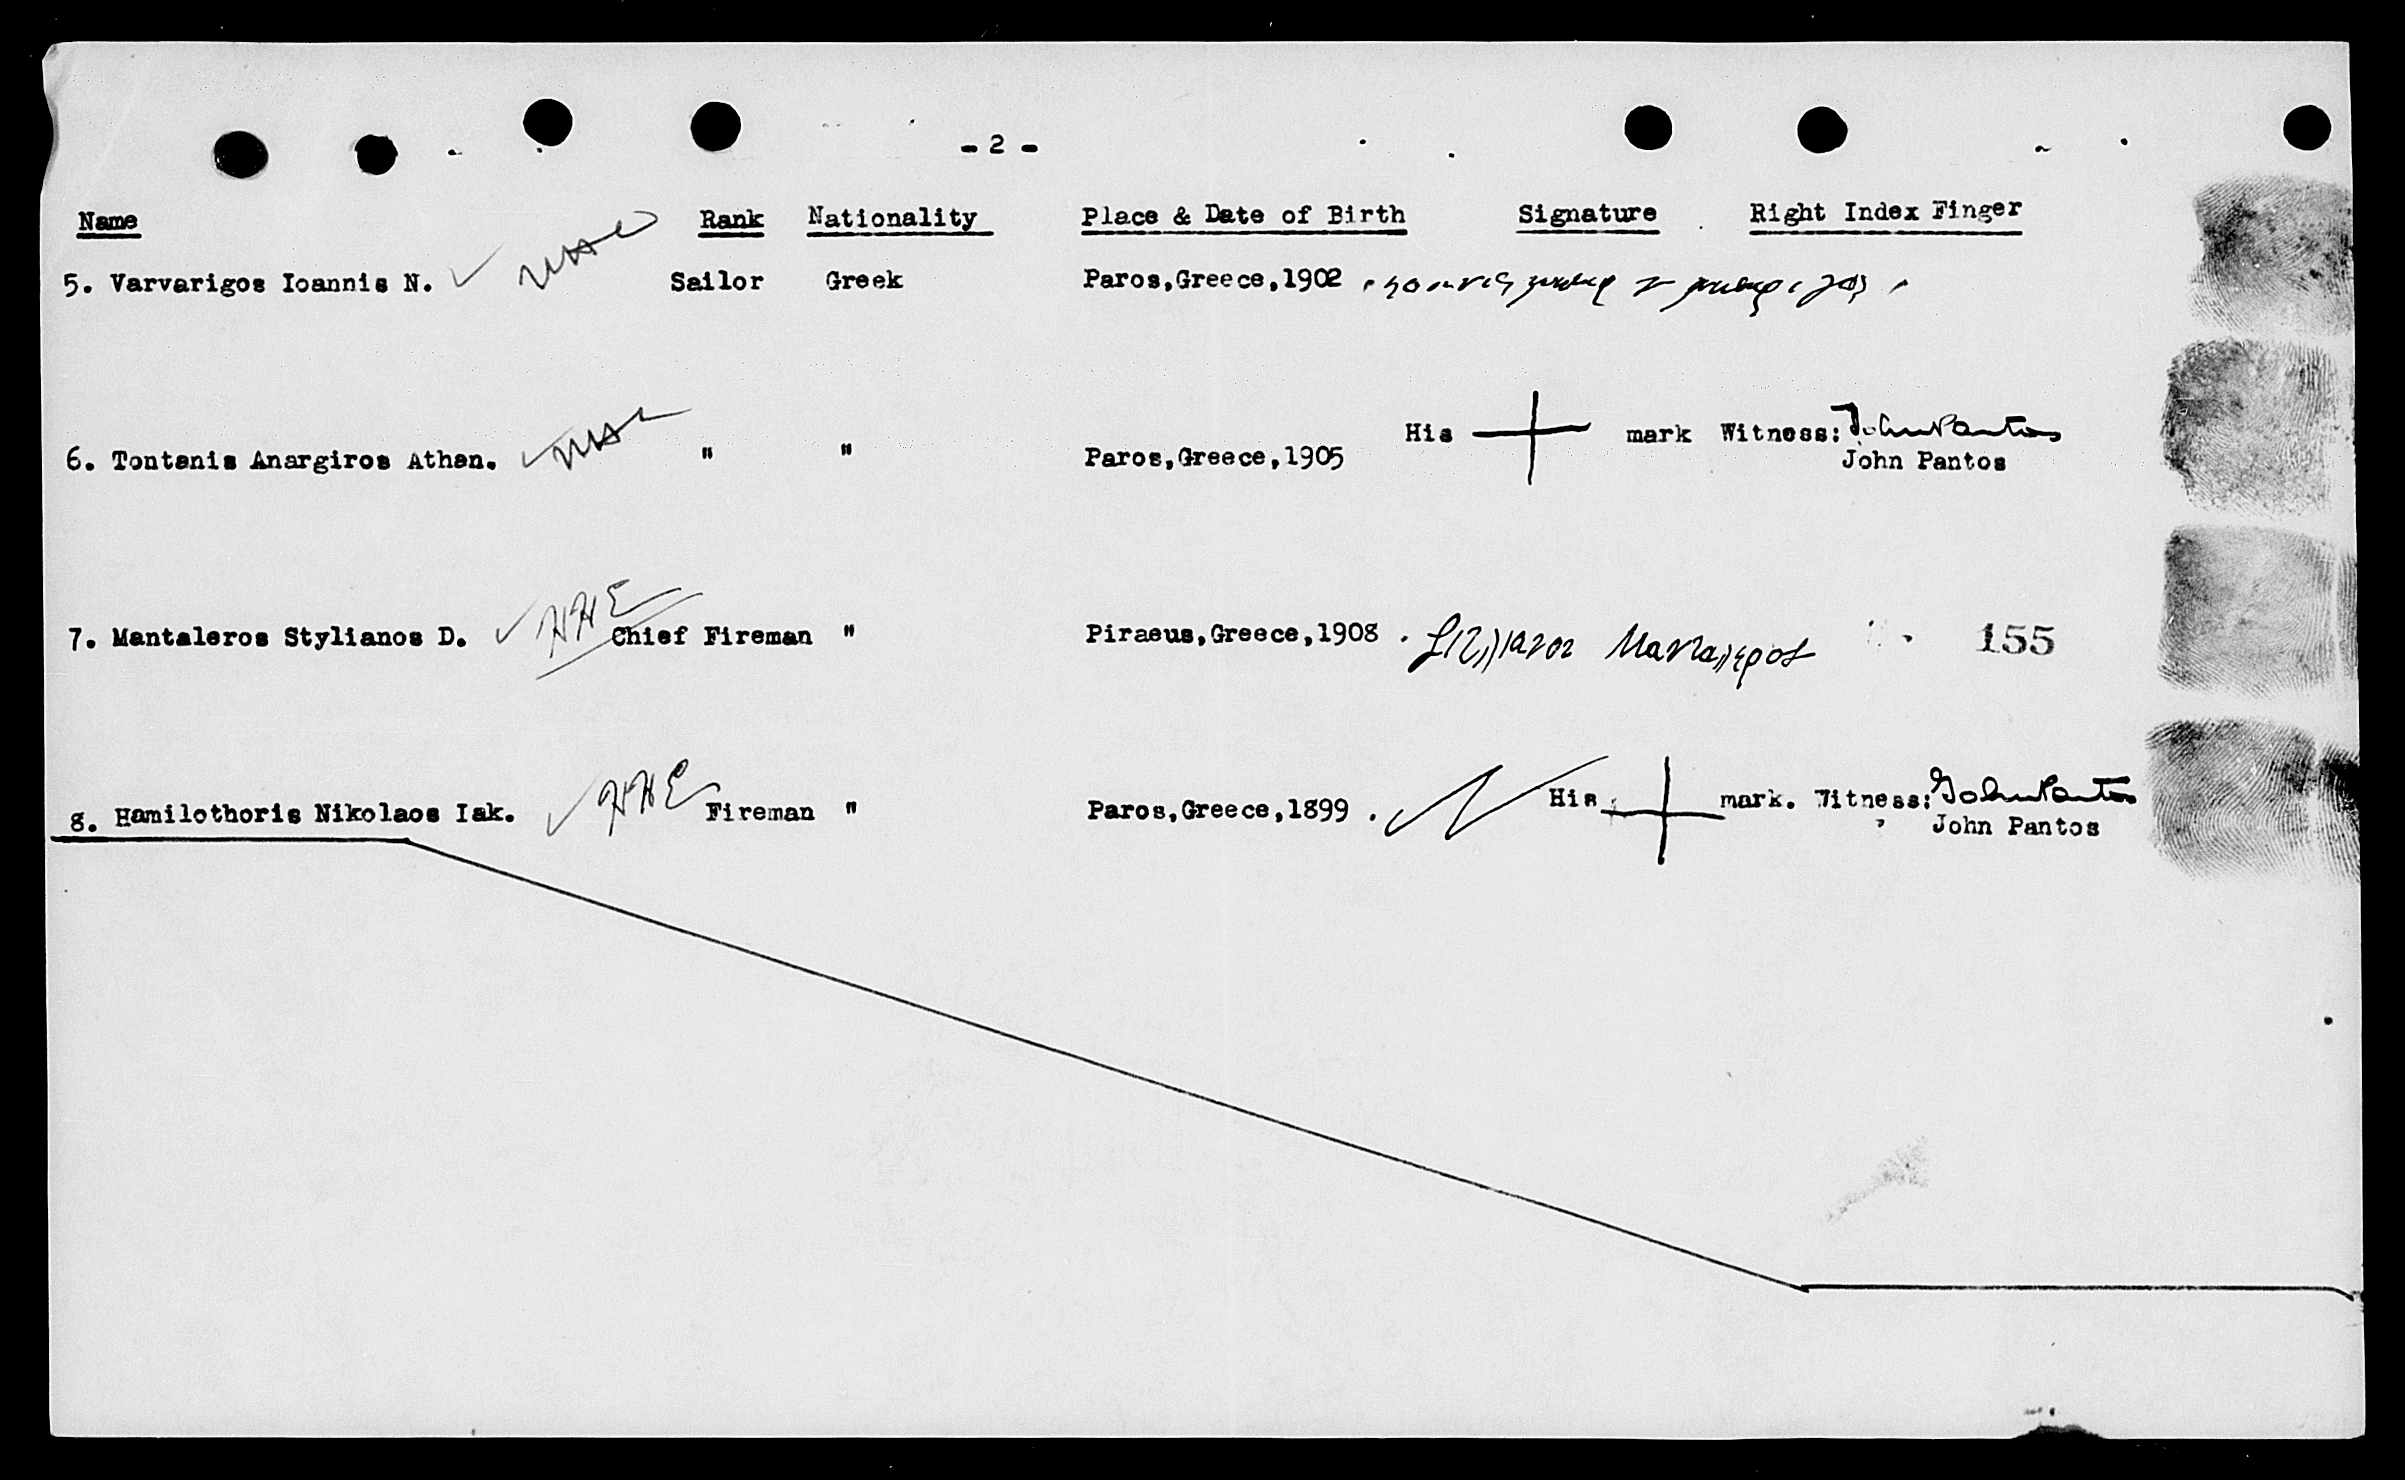 - 2 -
Name Rank Nationality Place & Date of Birth Signature Right Index Finger
5. Varvarigos Ioannis N. Sailor Greek Paros,Greece,1902
His mark Witness: John Pantos
6. Tontanis Anargiros Athan. " " Paros,Greece,1905 John Pantos
7. Mantaleros Stylianos D. HHE Chief Fireman " Piraeus,Greece,1908 155
8. Hamilothoris Nikolaos Iak. HHE Fireman " Paros,Greece,1899 . His mark. Witness: John Pantos
John Pantos